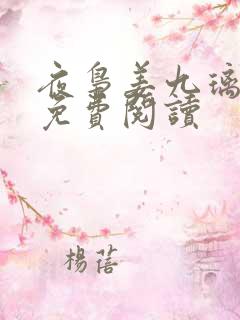 夜鳥姜九璃
免費閱讀
楊蓓